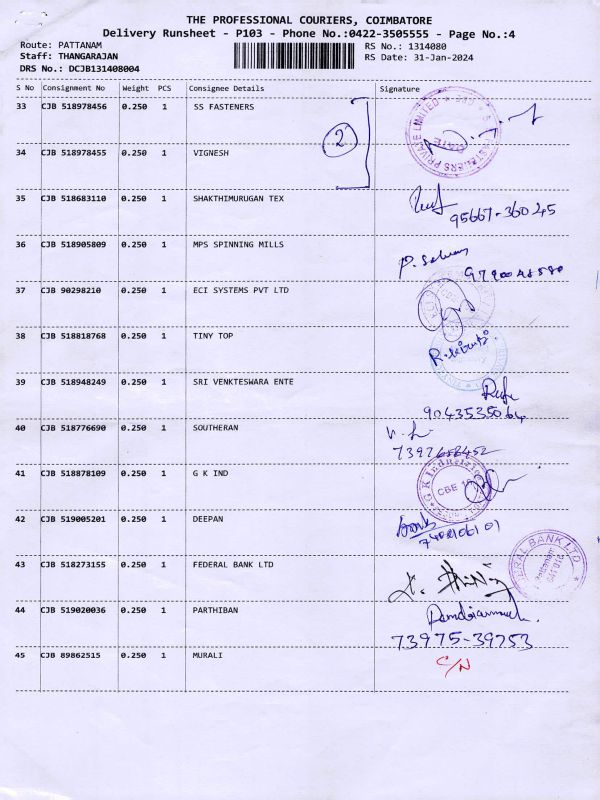 THE PROFESSIONAL COURIERS, COIMBATORE
Delivery Runsheet - P103 - Phone No.:0422-3505555 - Page No.:4
Route: PATTANAM RS No.: 1314080
Staff: THANGARAJAN RS Date: 31-Jan-2024
DRS No.: DCJB131408004
S No Consignment No Weight PCS Consignee Details Signature
33 CJB 518978456 0.250 1 SS FASTENERS
2
34 CJB 518978455 0.250 1 VIGNESH
35 CJB 518683110 0.250 1 SHAKTHIMURUGAN TEX
95667-36045
36 CJB 518905809 0.250 1 MPS SPINNING MILLS
P. Selvam
37 CJB 90298210 0.250 1 ECI SYSTEMS PVT LTD
38 CJB 518818768 0.250 1 TINY TOP
39 CJB 518948249 0.250 1 SRI VENKTESWARA ENTE
9043535064
40 CJB 518776690 0.250 1 SOUTHERAN
41 CJB 518878109 0.250 1 G K IND
G K Industries
CBE
42 CJB 519005201 0.250 1 DEEPAN
43 CJB 518273155 0.250 1 FEDERAL BANK LTD
ERAL BANK LTD
Pattanam
44 CJB 519020036 0.250 1 PARTHIBAN
73975-39753
45 CJB 89862515 0.250 1 MURALI
C/N